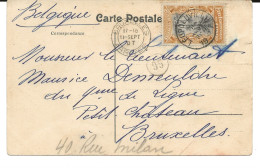 Belgique
Carte Postale
Correspondance
Monsieur le lieutenant
Maurice
du 9me de Ligne
Petit Château
Bruxelles.
40 Rue Milan